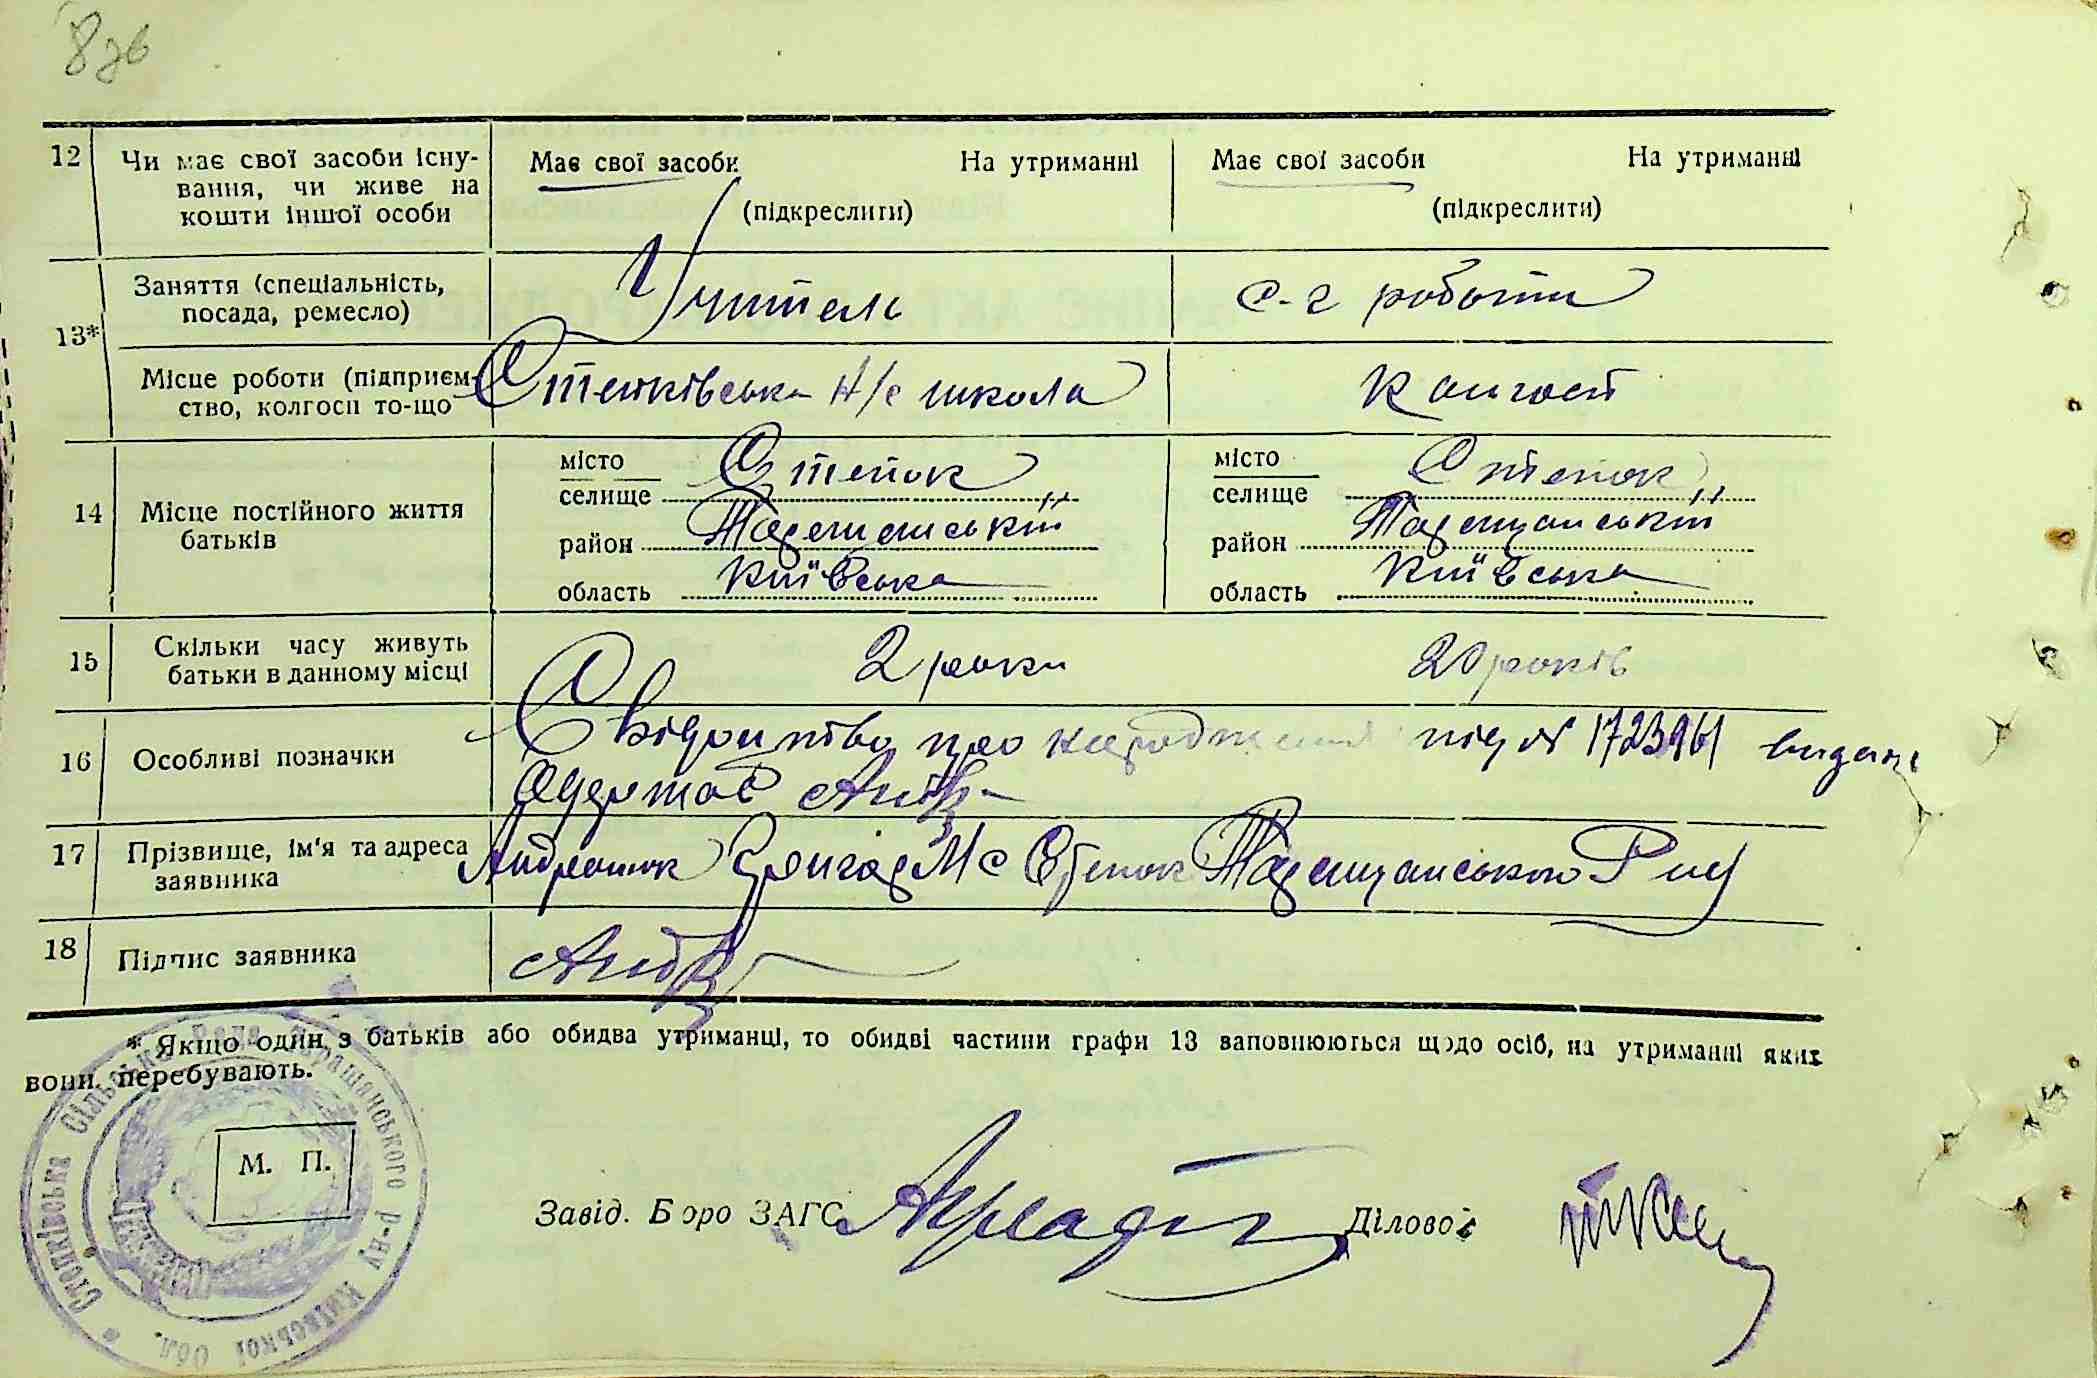 8 зв
12 Чи має свої засоби існу- Має свої засоби На утриманні Має свої засоби На утриманні
вання, чи живе на
кошти іншої особи (підкреслити) (підкреслити)
13* Заняття (спеціальність, Учитель с-г роботи
посада, ремесло)
Місце роботи (підприєм- школа Колгосп
ство, колгосп то-що
14 Місце постійного життя батьків
місто місто
селище селище
район Таращанський район Таращанський
область Київська область Київська
15 Скільки часу живуть 2 роки 20 років
батьки в данному місці
16 Особливі позначки Свідоцтво про народження під № видане
Одержав
17 Прізвище, ім'я та адреса Таращанського Р-ну
заявника
18 Підпис заявника
* Якщо один з батьків або обидва утриманці, то обидві частини графи 13 заповнюються щодо осіб, на утриманні яких
вони перебувають.
Сільська Рада Таращанського р-ну Київської Обл.
М. П.
Завід. Бюро ЗАГС Діловод